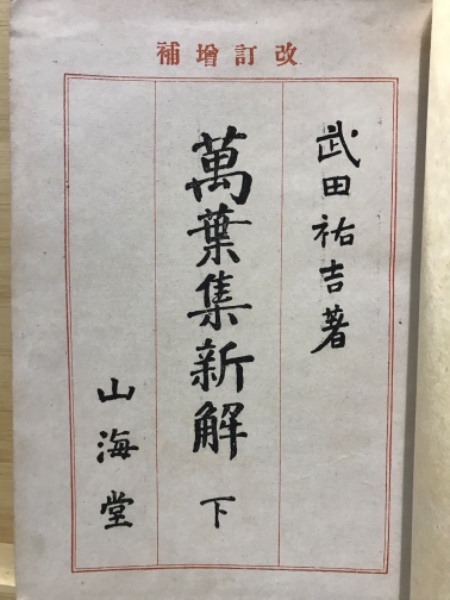 改訂增補
武田祐吉著
萬葉集新解 下
山海堂